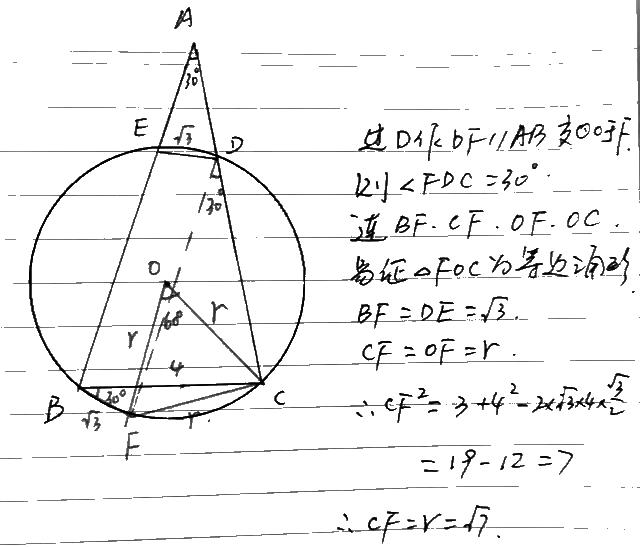 A
30°
E
√3
D
30°
O
60°
r
r
4
B
30°
C
√3
r
F
过D作DF//AB交⊙O于F.
则∠FDC=30°.
连BF.CF.OF.OC.
易证△FOC为等边三角形
BF=DE=√3.
CF=OF=r.
∴CF²=3+4²-2×√3×4×√3/2
=19-12=7
∴CF=r=√7.